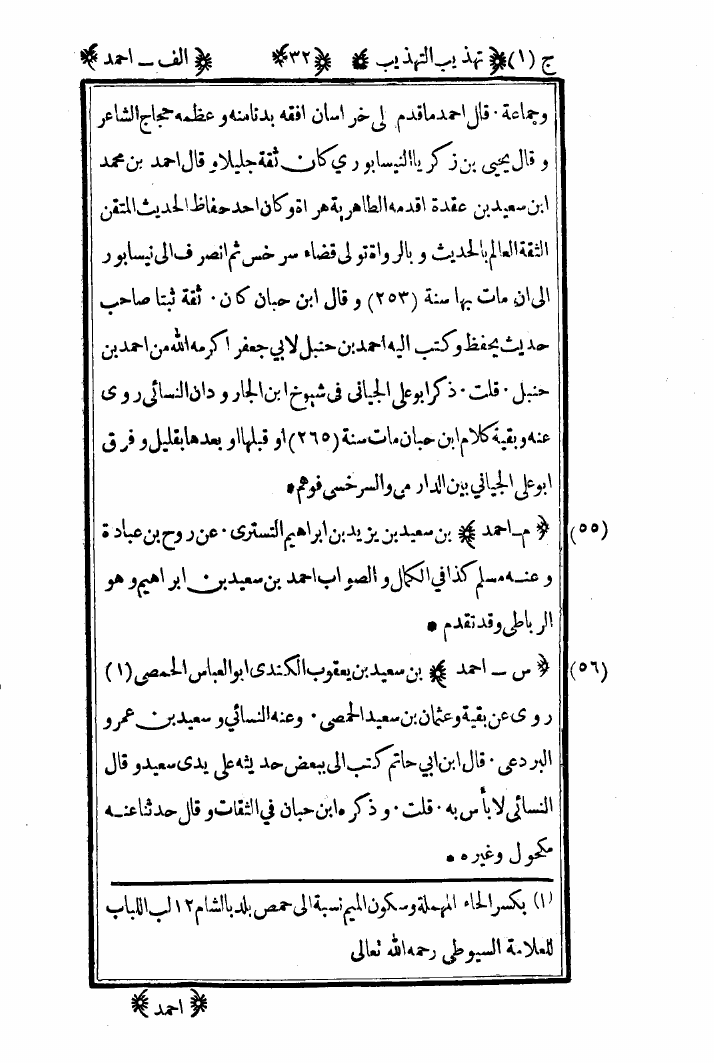 ج (١) ﴿ تهذيب التهذيب ﴾ ﴿ ٣٢ ﴾ ﴿ الف ــ احمد ﴾
وجماعة ٠ قال احمد ما قدم الى خراسان افقه بدنا منه وعظمه حجاج الشاعر
وقال يحيى بن زكريا النيسابوري كان ثقة جليلا وقال احمد بن محمد
ابن سعيد بن عقدة اقدمه الطاهرية هراة وكان احد حفاظ الحديث المتقن
الثقة العالم بالحديث وبالرواة تولى قضاء سرخس ثم انصرف الى نيسابور
الى ان مات بها سنة (٢٥٣) وقال ابن حبان كان ٠ ثقة ثبتا صاحب
حديث يحفظ وكتب اليه احمد بن حنبل لابي جعفر اكرمه الله من احمد بن
حنبل ٠ قلت ٠ ذكر ابو على الجياني فى شيوخ ابن الجارود ان النسائى روى
عنه وبقية كلام ابن حبان مات سنة (٢٦٥) او قبلها او بعدها بقليل وفرق
ابو على الجياني بين الدارمى والسرخسى فوهم *
(٥٥) ﴿ م ــ احمد ﴾ بن سعيد بن يزيد بن ابراهيم التسترى ٠ عن روح بن عبادة
وعنه مسلم كذا في الكمال والصواب احمد بن سعيد بن ابراهيم وهو
الرباطى وقد تقدم *
(٥٦) ﴿ س ــ احمد ﴾ بن سعيد بن يعقوب الكندى ابو العباس الحمصى (١)
روى عن بقية وعثمان بن سعيد الحمصي ٠ وعنه النسائي وسعيد بن عمرو
البردعى ٠ قال ابن ابي حاتم كتب الى ببعض حديثه على يدى سعيد وقال
النسائى لا بأس به ٠ قلت ٠ وذكره ابن حبان في الثقات وقال حدثنا عنه
مكحول وغيره *
(١) بكسر الحاء المهملة وسكون الميم نسبة الى حمص بلد بالشام ١٢ لب اللباب
للعلامة السيوطى رحمه الله تعالى
﴿ احمد ﴾